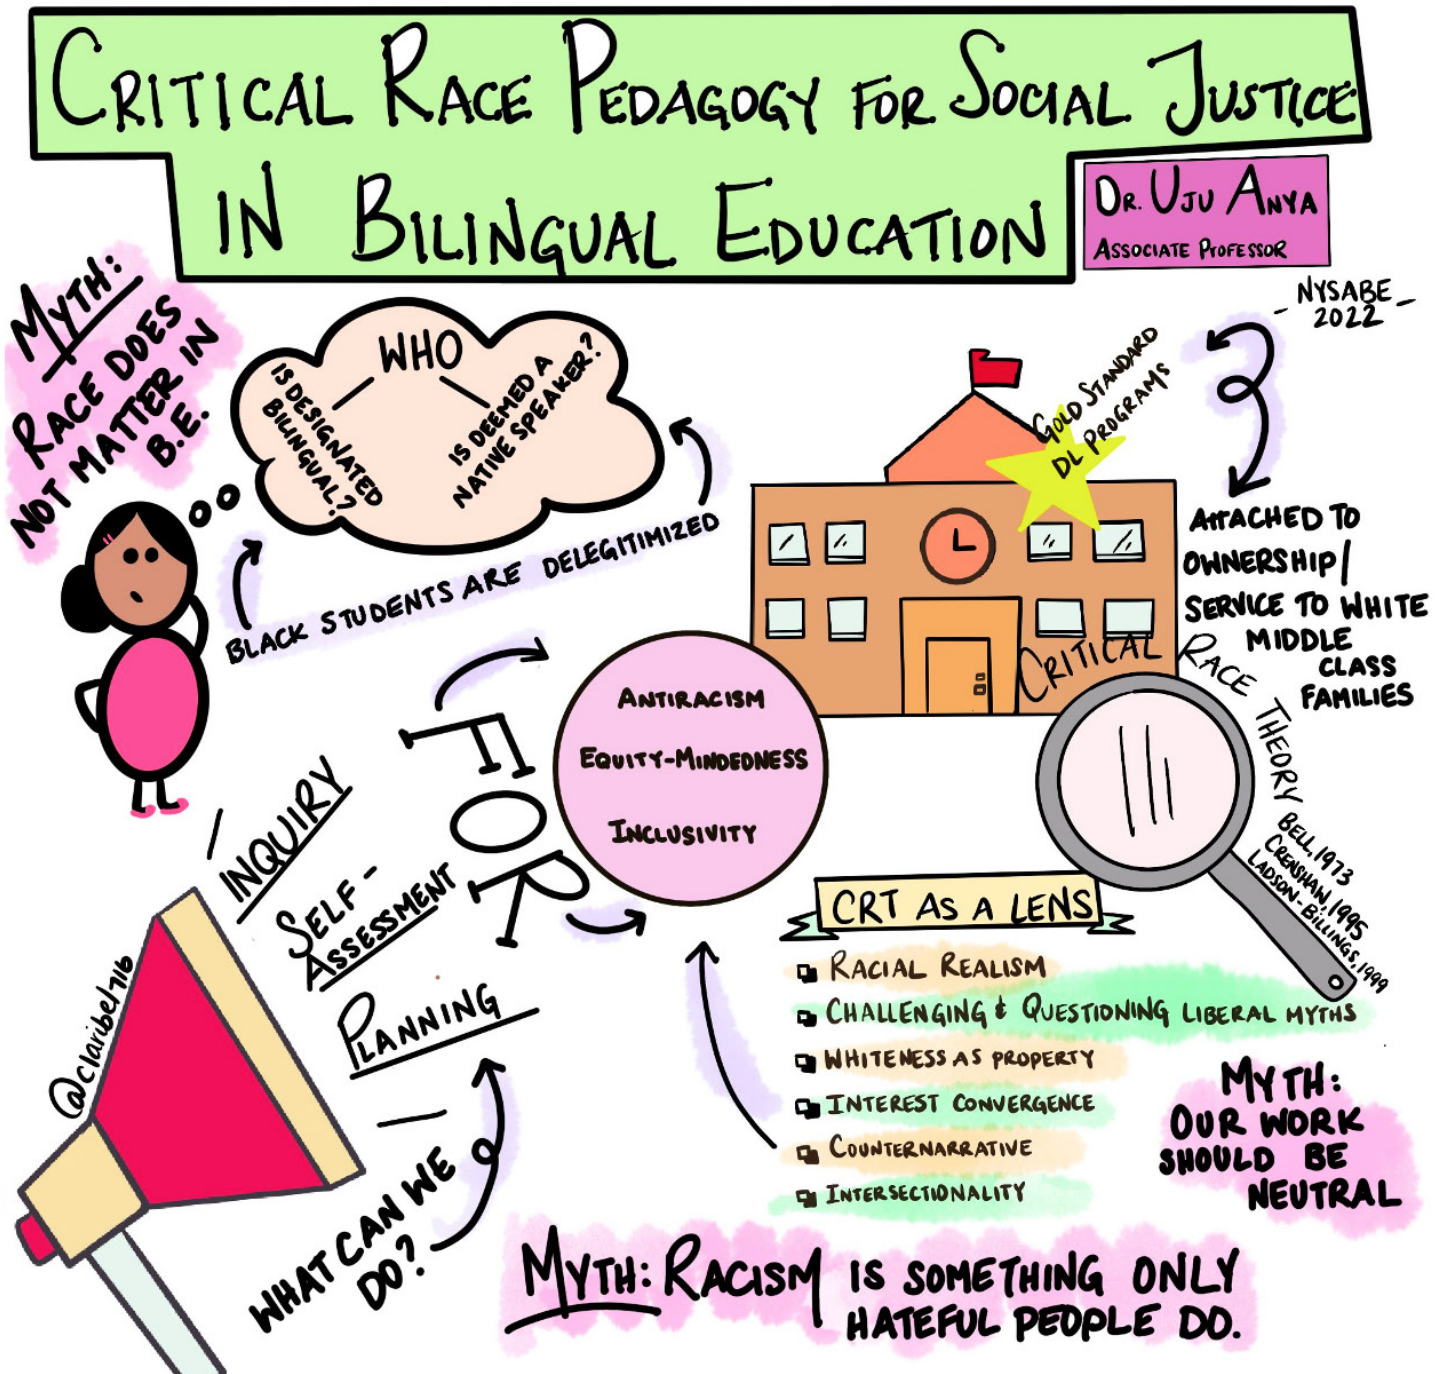 CRITICAL RACE PEDAGOGY FOR SOCIAL JUSTICE
IN BILINGUAL EDUCATION
DR. UJU ANYA
ASSOCIATE PROFESSOR
- NYSABE -
2022
MYTH:
RACE DOES
NOT MATTER IN
B.E.
WHO
IS DESIGNATED
BILINGUAL?
IS DEEMED A
NATIVE SPEAKER?
BLACK STUDENTS ARE DELEGITIMIZED
GOLD STANDARD
DL PROGRAMS
ATTACHED TO
OWNERSHIP/
SERVICE TO WHITE
MIDDLE
CLASS
FAMILIES
CRITICAL RACE THEORY
BELL, 1973
CRENSHAW, 1995
LADSON-BILLINGS, 1999
ANTIRACISM
EQUITY-MINDEDNESS
INCLUSIVITY
FOR
INQUIRY
SELF-
ASSESSMENT
PLANNING
@claribel716
WHAT CAN WE
DO?
CRT AS A LENS
RACIAL REALISM
CHALLENGING & QUESTIONING LIBERAL MYTHS
WHITENESS AS PROPERTY
INTEREST CONVERGENCE
COUNTERNARRATIVE
INTERSECTIONALITY
MYTH:
OUR WORK
SHOULD BE
NEUTRAL
MYTH: RACISM IS SOMETHING ONLY
HATEFUL PEOPLE DO.